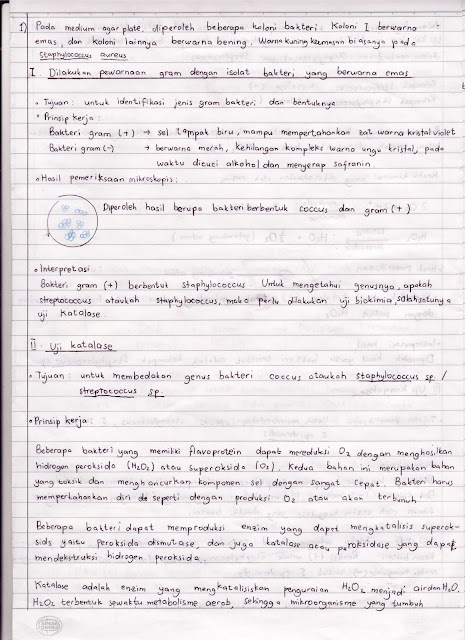 1) Pada medium agar plate, diperoleh beberapa koloni bakteri. Koloni I berwarna
emas, dan koloni lainnya berwarna bening. Warna kuning keemasan biasanya pada
Staphylococcus aureus
I Dilakukan pewarnaan gram dengan isolat bakteri, yang berwarna emas
• Tujuan : untuk identifikasi jenis gram bakteri dan bentuknya
• Prinsip kerja :
Bakteri gram (+) → sel tampak biru, mampu mempertahankan zat warna kristal violet
Bakteri gram (-) → berwarna merah, kehilangan kompleks warna ungu kristal, pada
waktu dicuci alkohol dan menyerap safranin
• Hasil pemeriksaan mikroskopis :
Diperoleh hasil berupa bakteri berbentuk coccus dan gram (+)
• Interpretasi :
Bakteri gram (+) berbentuk staphylococcus. Untuk mengetahui genusnya, apakah
streptococcus ataukah staphylococcus, maka perlu dilakukan uji biokimia, salah satunya
uji katalase.
II. Uji katalase
• Tujuan : untuk membedakan genus bakteri coccus ataukah staphylococcus sp /
streptococcus sp.
• Prinsip kerja :
Beberapa bakteri yang memiliki flavoprotein dapat mereduksi O2 dengan menghasilkan
hidrogen peroksida (H2O2) atau superoksida (O2). Kedua bahan ini merupakan bahan
yang toksik dan menghancurkan komponen sel dengan sangat cepat. Bakteri harus
mempertahankan diri seperti dengan produksi O2 atau akan terbunuh.
Beberapa bakteri dapat memproduksi enzim yang dapat mengkatalisis superok-
sids yaitu peroksida dismutase, dan juga katalase atau peroksidase yang dapat
mendekstruksi hidrogen peroksida.
Katalase adalah enzim yang mengkatalisiskan penguraian H2O2 menjadi air dan H2O.
H2O2 terbentuk sewaktu metabolisme aerob, sehingga mikroorganisme yang tumbuh